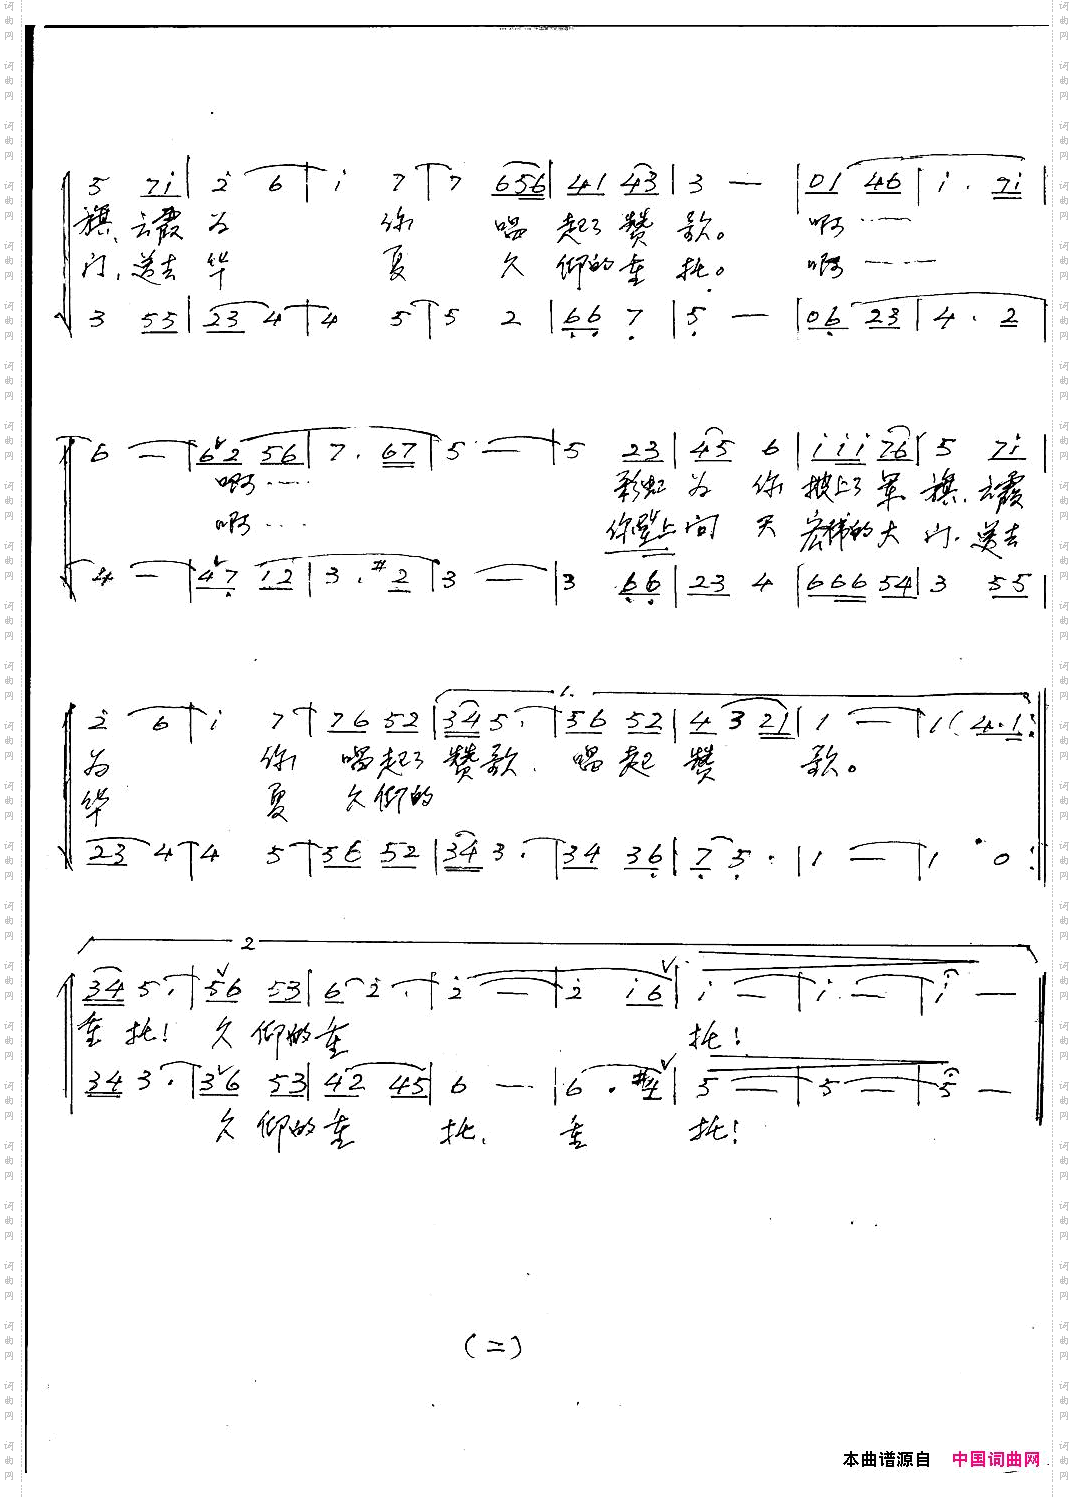 5 7i | 2 6 | i 7 | 7 656 | 41 43 | 3 — | 01 46 | i . 7i |
旗，云霞 为 你 唱 起了 赞 歌。 啊……
门，送去 华 夏 久 仰的 重 托。 啊……
3 55 | 23 4 | 4 5 | 5 2 | 66 7 | 5 — | 06 23 | 4 . 2 |
6 — | 62 56 | 7 . 67 | 5 — | 5 23 | 45 6 | iii 76 | 5 7i |
啊…… 彩虹 为 你 披上了 军 旗，云霞
啊…… 你登上 问 天 宏伟的 大 门，送去
4 — | 47 12 | 3 . #2 | 3 — | 3 66 | 23 4 | 666 54 | 3 55 |
1.
2 6 | i 7 | 76 52 | 34 5 . | 56 52 | 4 3 21 | 1 — | 1 ( 4.1 :
为 你 唱起了 赞歌， 唱起 赞 歌。
华 夏 久仰的
23 4 | 4 5 | 56 52 | 34 3 . | 34 36 | 7 5 . | 1 — | 1 0 :
2
34 5 . | 56 53 | 6 2 . | 2 — | 2 i6 | i — | i . — | i —
重 托！ 久 仰的 重 托！
34 3 . | 36 53 | 42 45 | 6 — | 6 . #4 | 5 — | 5 — | 5 —
久 仰的 重 托， 重 托！
(二)
本曲谱源自 中国词曲网